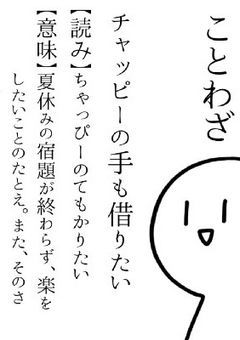 ことわざ
チャッピーの手も借りたい
【読み】ちゃっぴーのてもかりたい
【意味】夏休みの宿題が終わらず、楽を
したいことのたとえ。また、そのさ